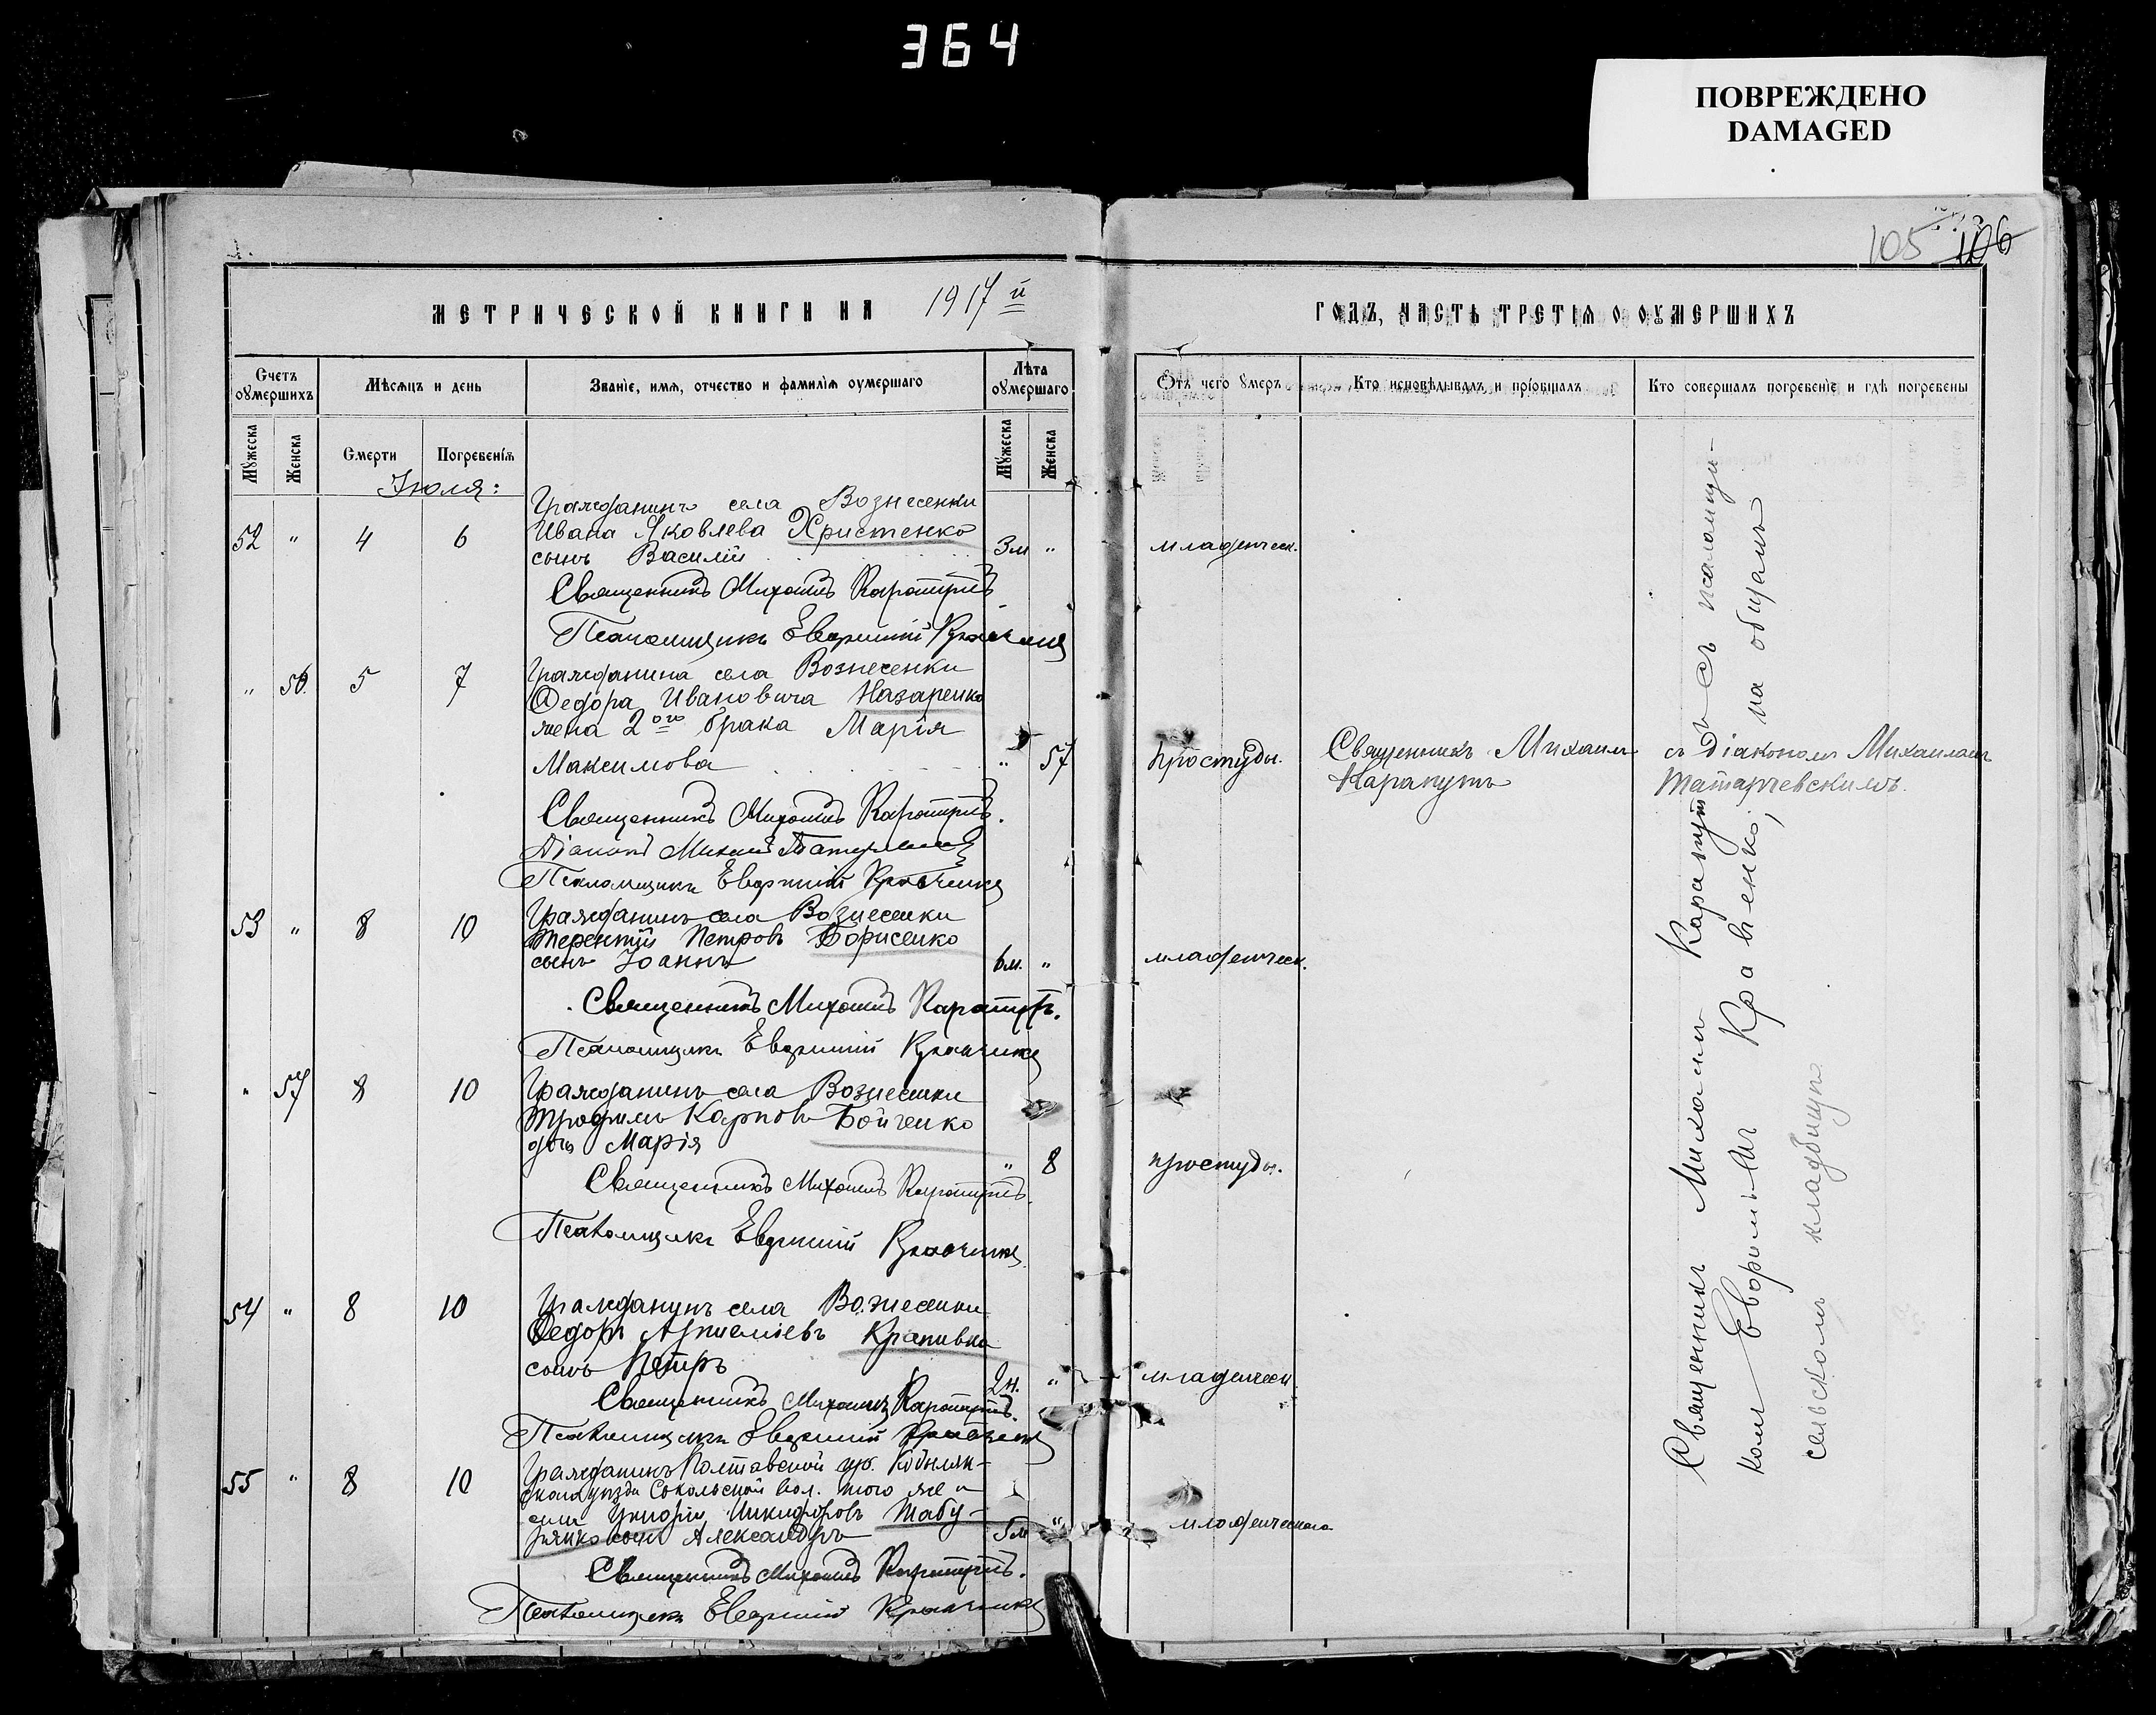 364
ПОВРЕЖДЕНО
DAMAGED
105 106
МЕТРИЧЕСКОЙ КНИГИ НА 1917 й
ГОДЪ, ЧАСТЬ ТРЕТІЯ О ОУМЕРШИХЪ
Счетъ оумершихъ
Мѣсяцъ и день
Званіе, имя, отчество и фамилія оумершаго
Лѣта оумершаго
Отъ чего умеръ
Кто исповѣдывалъ и пріобщалъ
Кто совершалъ погребеніе и гдѣ погребены
Мужеска
Женска
Смерти
Погребенія
Мужеска
Женска
Іюля:
Гражданинъ села Вознесенки
52 " 4 6 Ивана Яковлева Христенко
сынъ Василій 3м " младенческ.
Священникъ Михаилъ Карапутъ
Псаломщикъ Евфимій Кравченко
" 56. 5 7 Гражданина села Вознесенки
Федора Ивановича Назаренко
жена 2ого брака Марія
Максимова " 57 простуды. Священникъ Михаилъ Карапутъ съ діакономъ Михаиломъ Татарчевскимъ.
Священникъ Михаилъ Карапутъ.
Діаконъ Михаилъ
Псаломщикъ Евфимій Кравченко
53 " 8 10 Гражданинъ села Вознесенки
Терентій Петровъ Борисенко
сынъ Іоаннъ 6м. " младенческ.
Священникъ Михаилъ Карапутъ.
Псаломщикъ Евфимій Кравченко
" 57 8 10 Гражданинъ села Вознесенки
Трофимъ Карповъ Бойченко
дочь Марія " 8 простуды.
Священникъ Михаилъ Карапутъ.
Псаломщикъ Евфимій Кравченко
54 " 8 10 Гражданинъ села Вознесенки
Федоръ Крапивка
сынъ Петръ 2н. " младенческ.
Священникъ Михаилъ Карапутъ.
Псаломщикъ Евфимій Кравченко
55 " 8 10 Гражданинъ Полтавской гу. Кобыляк-
скаго уѣзда Сокольской вол. того же
села Никифоровъ Шабу-
сынъ Александръ 5м " младенческаго
Священникъ Михаилъ Карапутъ.
Псаломщикъ Евфимій Кравченко
Священникъ Михаилъ Карапутъ съ псаломщи-
комъ Евфиміемъ Кравченко, на общемъ
сельскомъ кладбищѣ